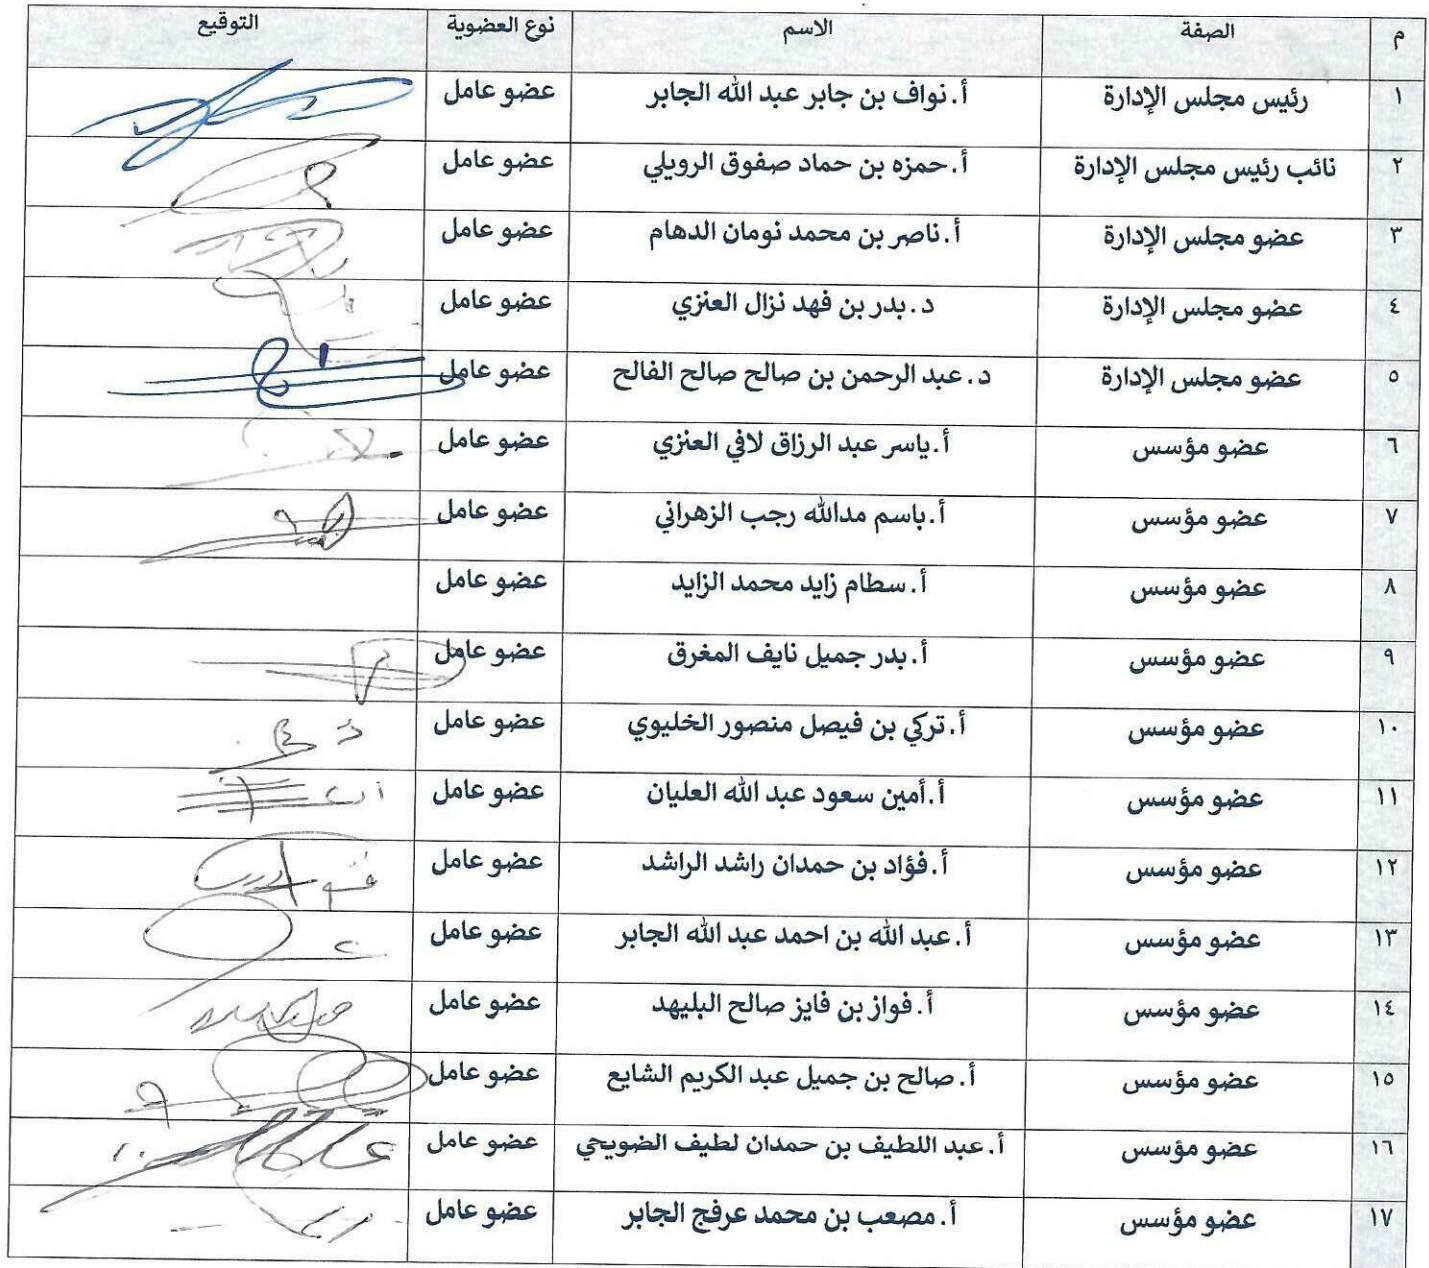 م الصفة الاسم نوع العضوية التوقيع
١ رئيس مجلس الإدارة أ.نواف بن جابر عبد الله الجابر عضو عامل
٢ نائب رئيس مجلس الإدارة أ.حمزه بن حماد صفوق الرويلي عضو عامل
٣ عضو مجلس الإدارة أ.ناصر بن محمد نومان الدهام عضو عامل
٤ عضو مجلس الإدارة د.بدر بن فهد نزال العنزي عضو عامل
٥ عضو مجلس الإدارة د.عبد الرحمن بن صالح صالح الفالح عضو عامل
٦ عضو مؤسس أ.ياسر عبد الرزاق لافي العنزي عضو عامل
٧ عضو مؤسس أ.باسم مدالله رجب الزهراني عضو عامل
٨ عضو مؤسس أ.سطام زايد محمد الزايد عضو عامل
٩ عضو مؤسس أ.بدر جميل نايف المغرق عضو عامل
١٠ عضو مؤسس أ.تركي بن فيصل منصور الخليوي عضو عامل
١١ عضو مؤسس أ.أمين سعود عبد الله العليان عضو عامل
١٢ عضو مؤسس أ.فؤاد بن حمدان راشد الراشد عضو عامل
١٣ عضو مؤسس أ.عبد الله بن احمد عبد الله الجابر عضو عامل
١٤ عضو مؤسس أ.فواز بن فايز صالح البليهد عضو عامل
١٥ عضو مؤسس أ.صالح بن جميل عبد الكريم الشايع عضو عامل
١٦ عضو مؤسس أ.عبد اللطيف بن حمدان لطيف الضويحي عضو عامل
١٧ عضو مؤسس أ.مصعب بن محمد عرفج الجابر عضو عامل